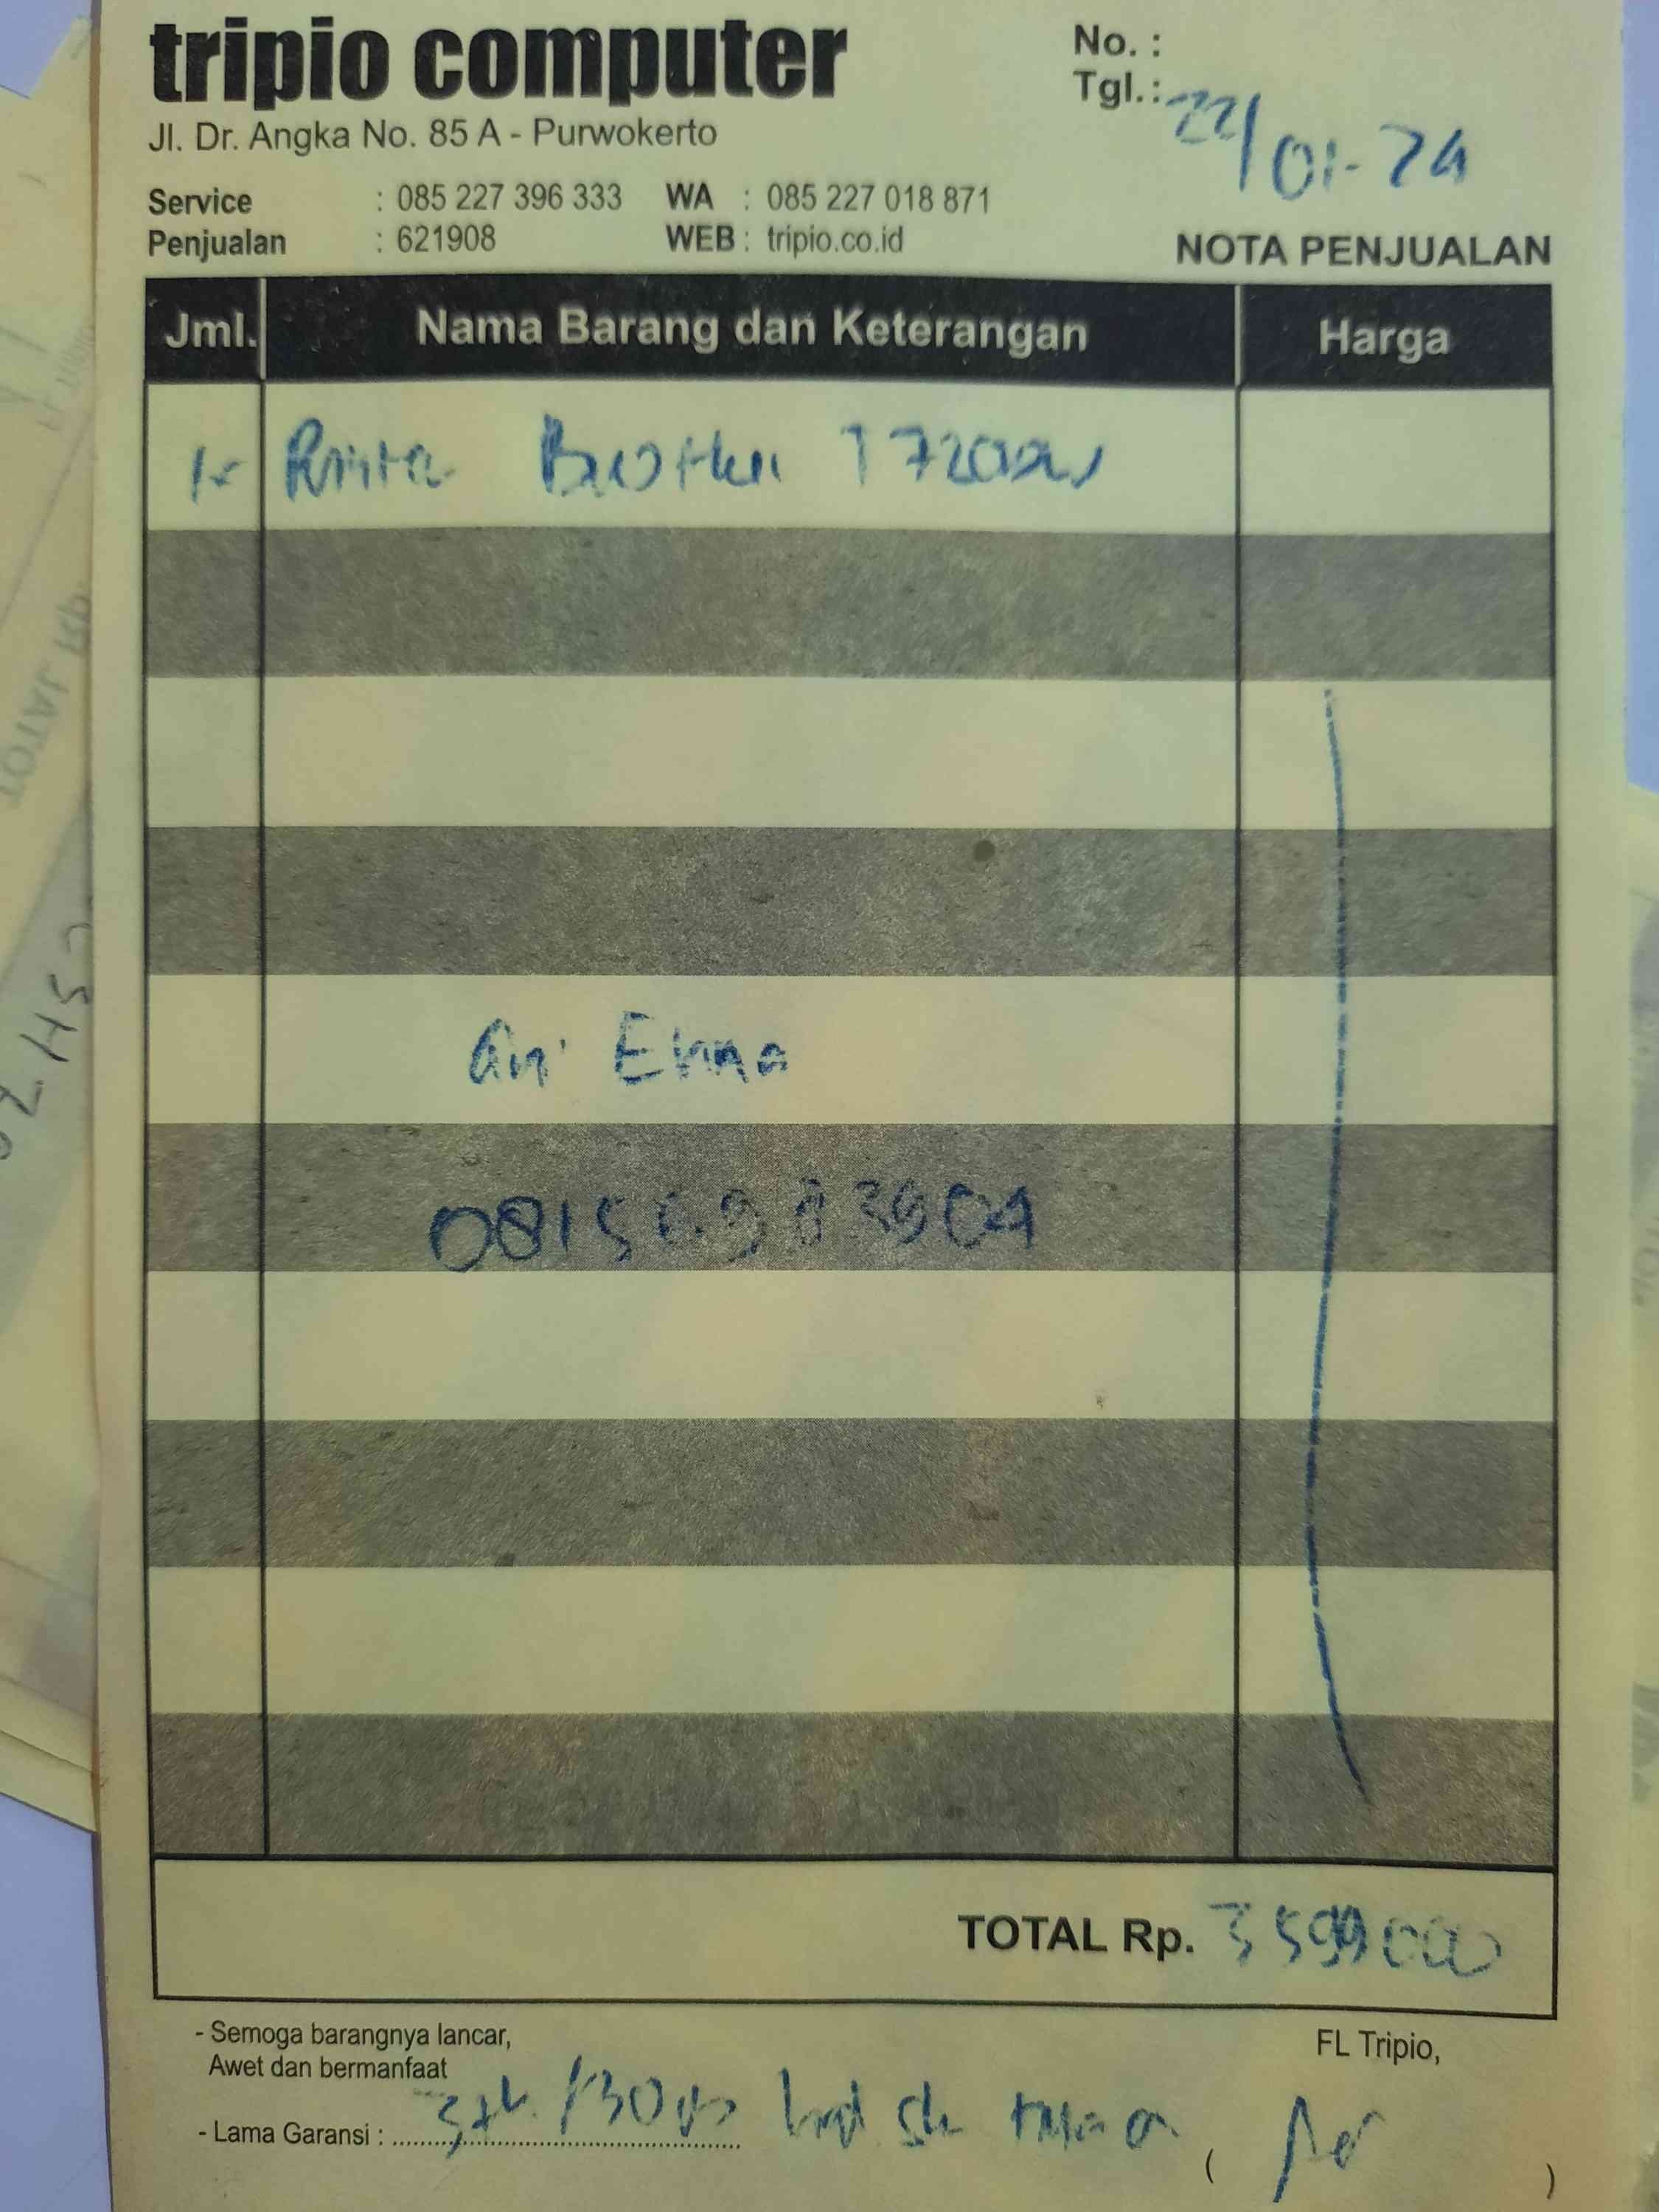 tripio computer
Jl. Dr. Angka No. 85 A - Purwokerto
Service : 085 227 396 333 WA : 085 227 018 871
Penjualan : 621908 WEB : tripio.co.id
No. :
Tgl.: 22/01-24
NOTA PENJUALAN
Jml. Nama Barang dan Keterangan Harga
1x Printer Brother T720DW
TOTAL Rp. 3599000
- Semoga barangnya lancar,
Awet dan bermanfaat
- Lama Garansi : 3th /30
FL Tripio,
( )